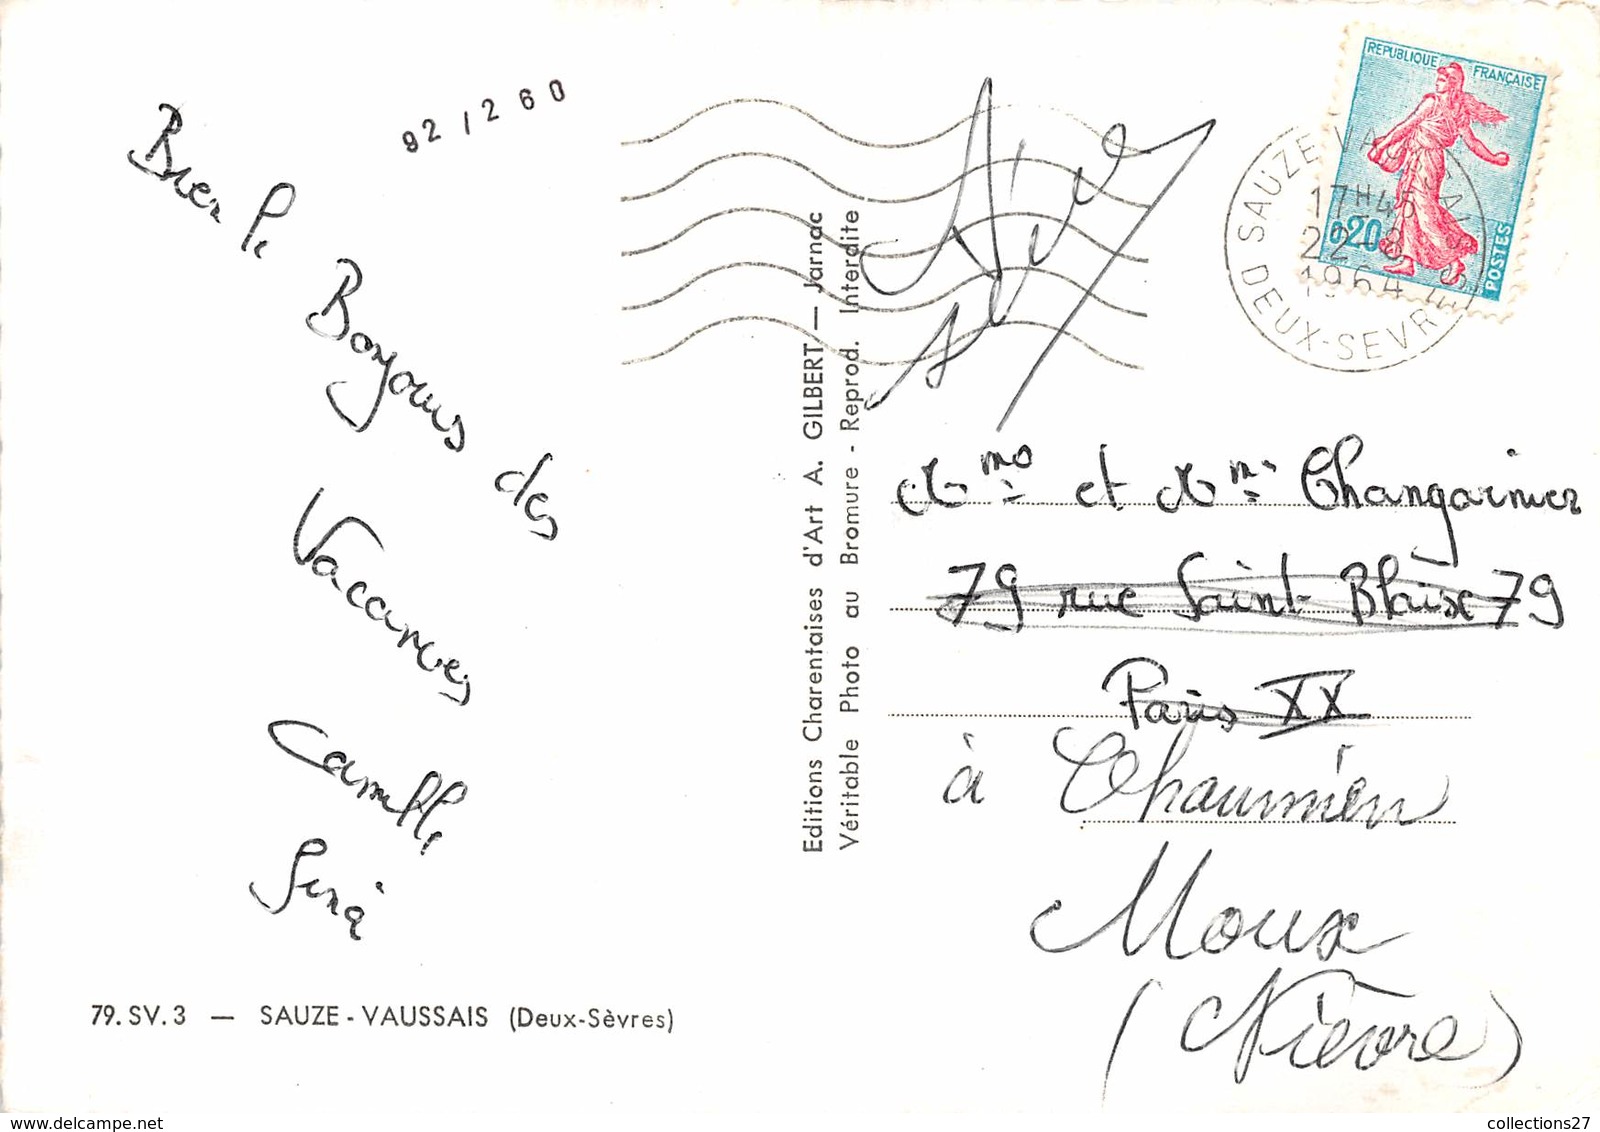 92/260
REPUBLIQUE FRANÇAISE
0,20
POSTES
SAUZE-VAUSSAIS
17H45
22-8
1964
DEUX-SEVRES
Bien le
Bonjours des
Vacances
Camille
Editions Charentaises d'Art A. GILBERT — Jarnac
Véritable Photo au Bromure - Reprod. Interdite
et Changarnier
79 rue Saint-Blaise 79
Paris XX
à Chaumien
Moux
(Nièvre)
79. SV. 3 — SAUZE-VAUSSAIS (Deux-Sèvres)
collections27